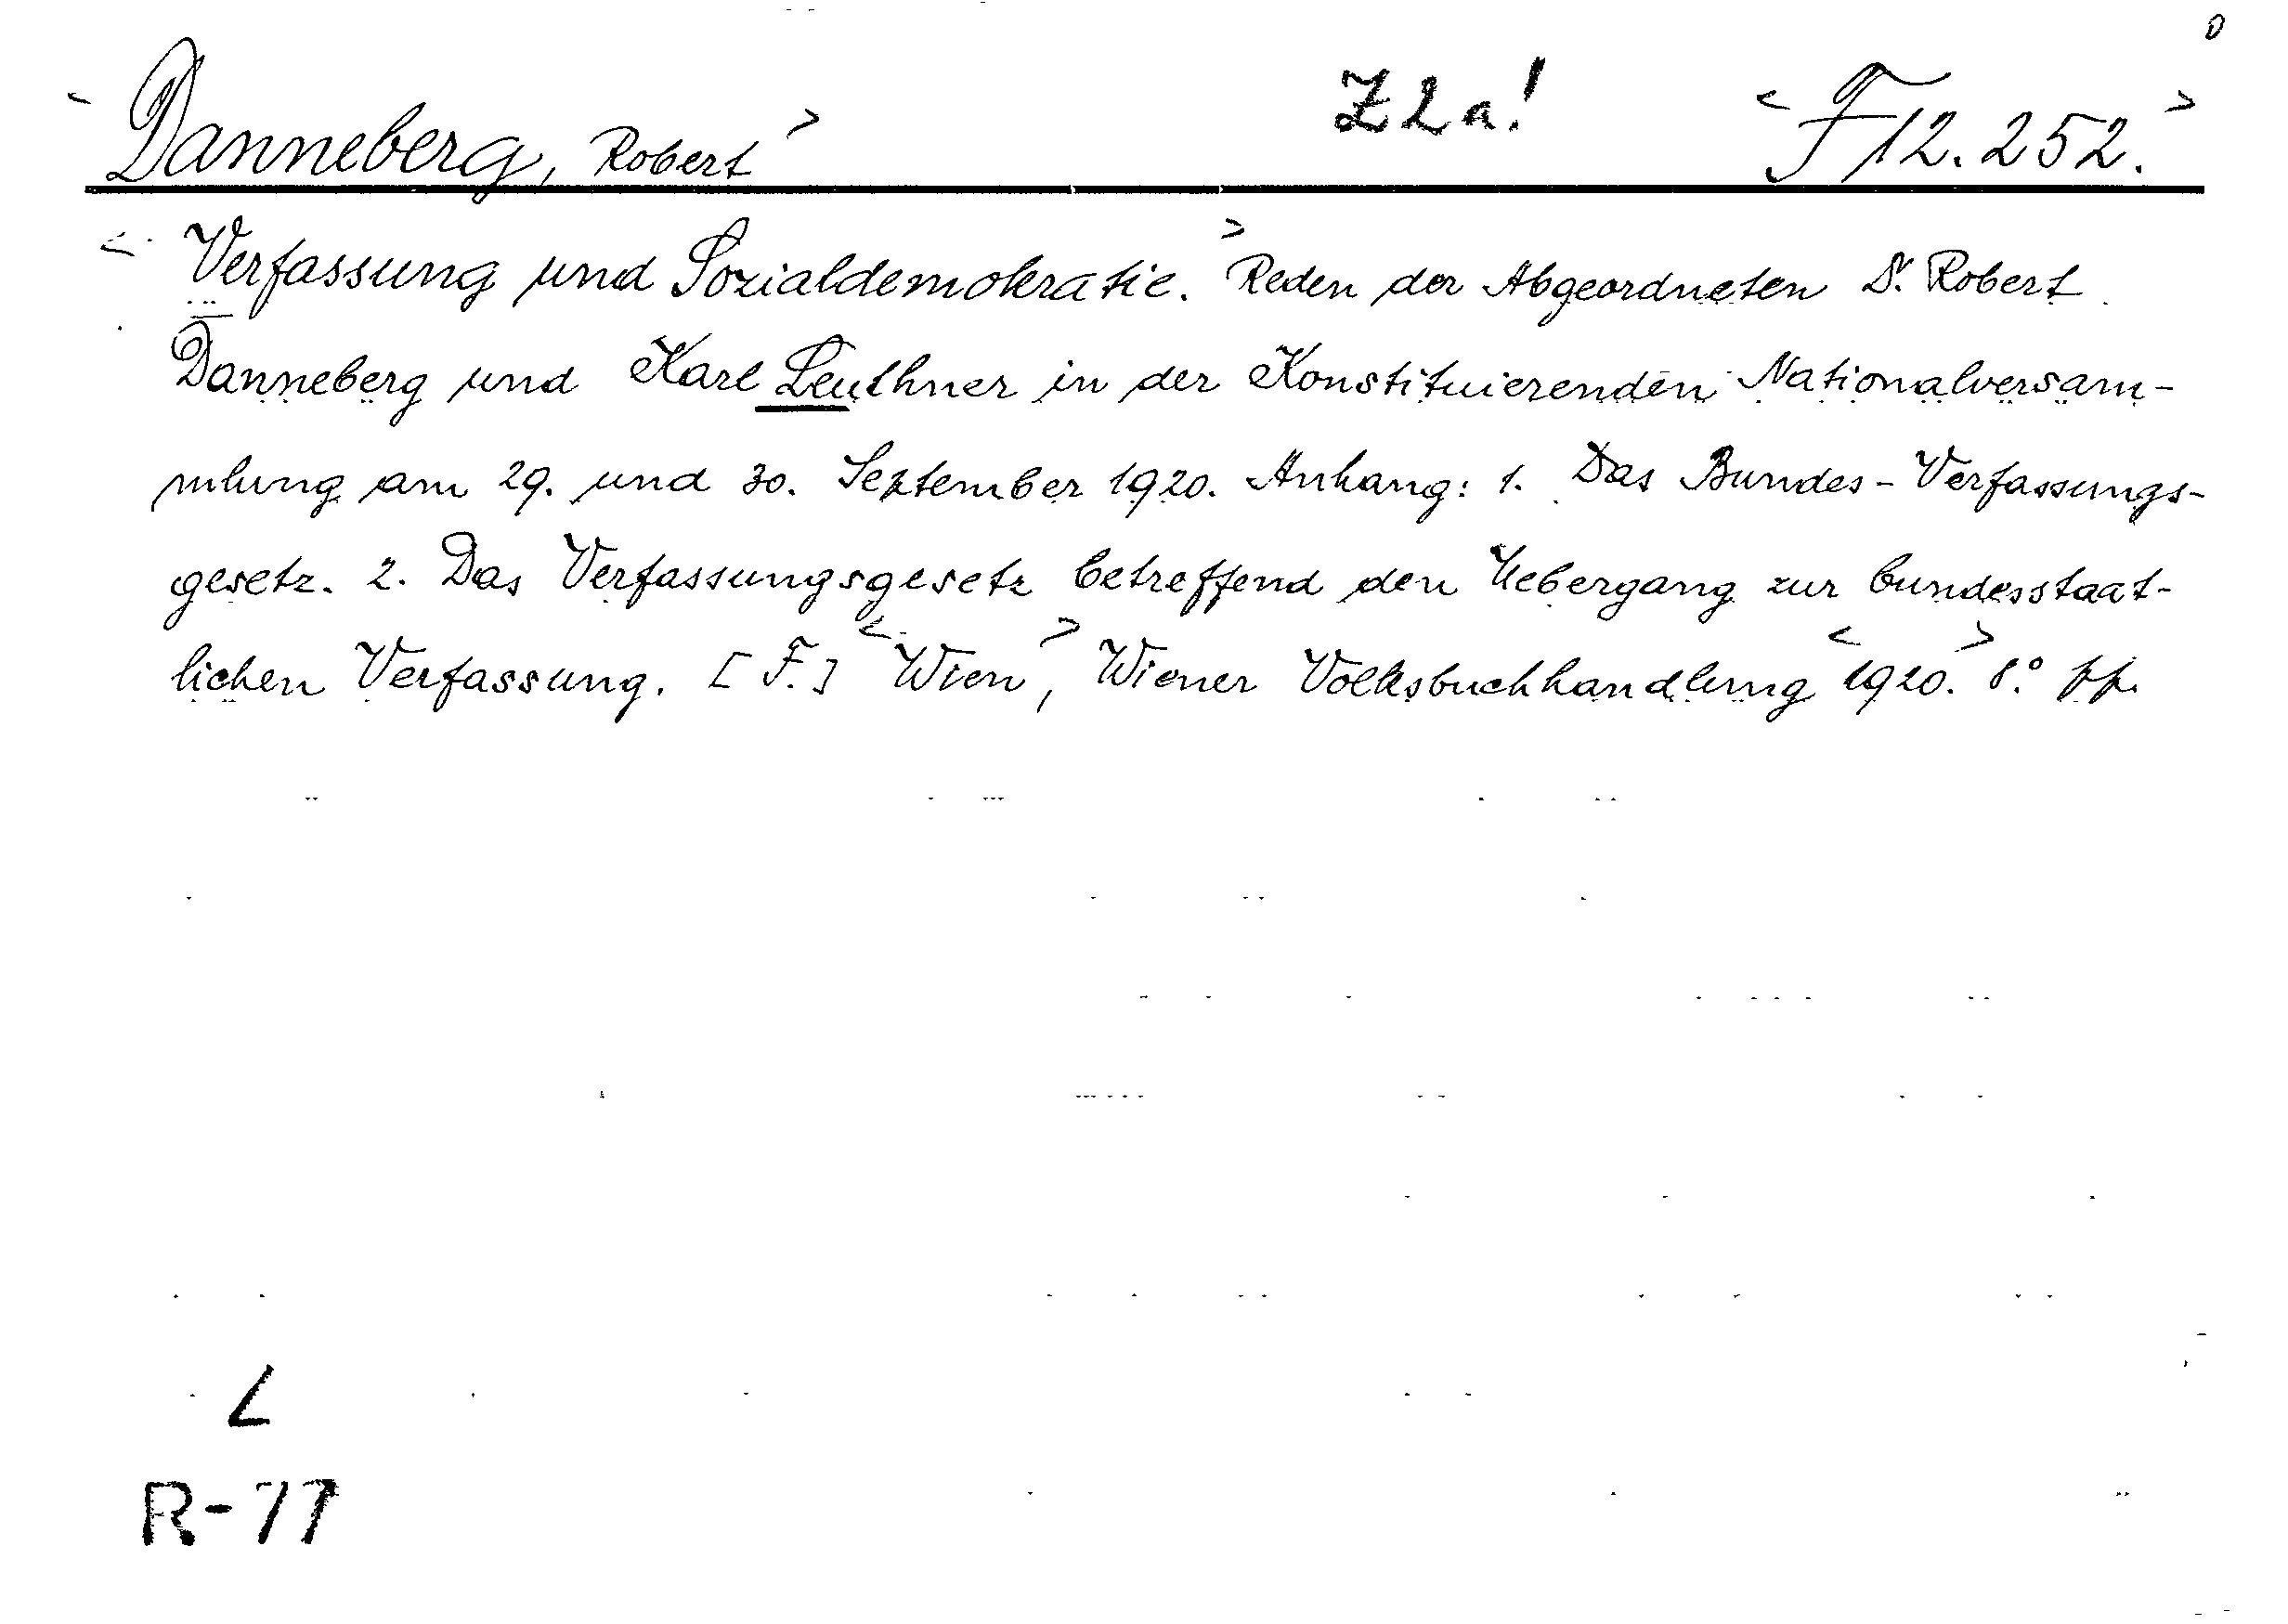 <Danneberg, Robert> Z2a! <F 12.252.>
<Verfassung und Sozialdemokratie.> Reden der Abgeordneten Dr. Robert
Danneberg und Karl Leuthner in der Konstituierenden Nationalversam-
mlung am 29. und 30. September 1920. Anhang: 1. Das Bundes-Verfassungs-
gesetz. 2. Das Verfassungsgesetz betreffend den Uebergang zur bundesstaat-
lichen Verfassung. [F.] <Wien>, Wiener Volksbuchhandlung <1920.> 8° pp.
L
R-77